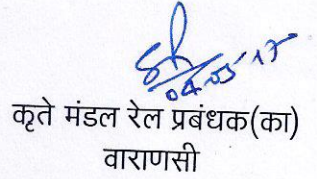 04-05-17
कृते मंडल रेल प्रबंधक(का)
वाराणसी